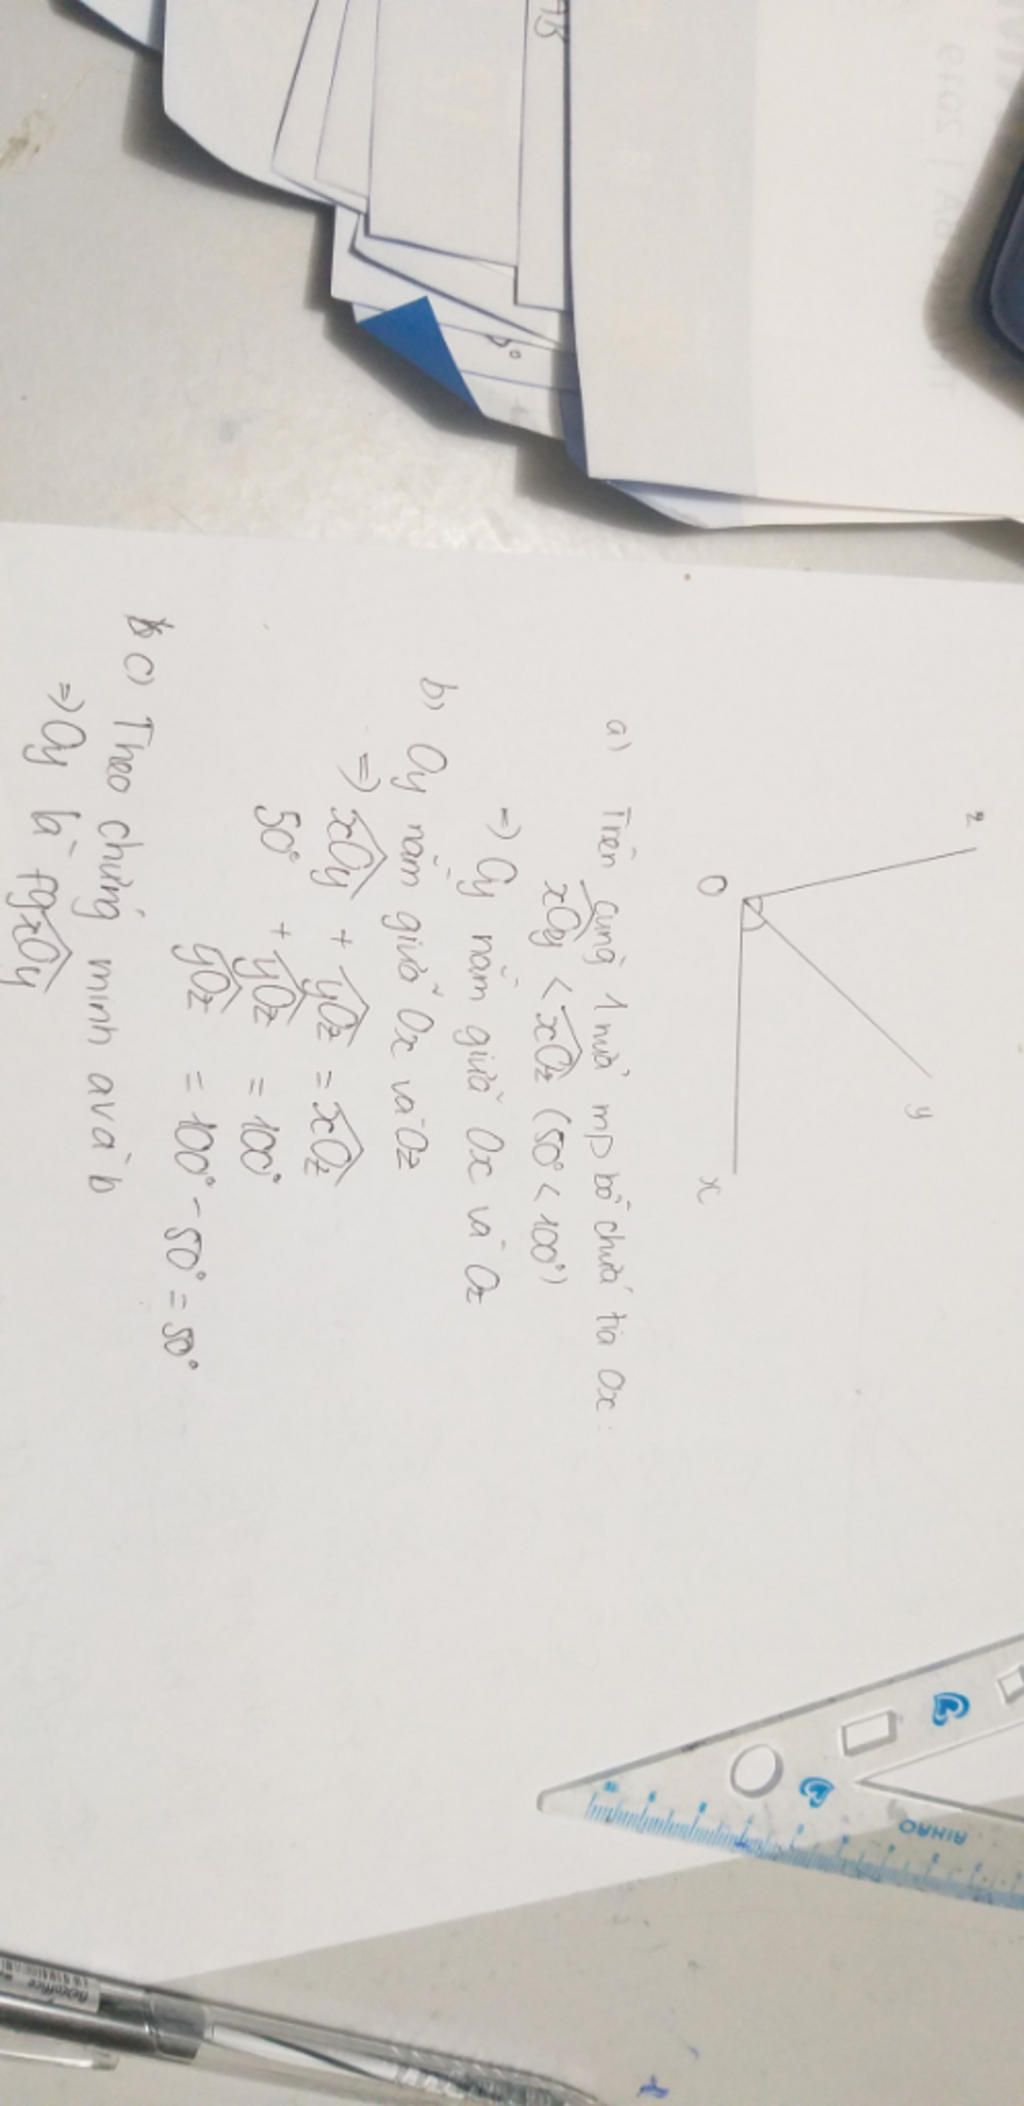 z
y
O
x
a) Trên cùng 1 nửa mp bờ chứa tia Ox:
xOy < xOz (50° < 100°)
=) Oy nằm giữa Ox và Oz
b) Oy nằm giữa Ox và Oz
=) xOy + yOz = xOz
50° + yOz = 100°
yOz = 100° - 50° = 50°
c) Theo chứng minh a và b
=) Oy là pg xOy